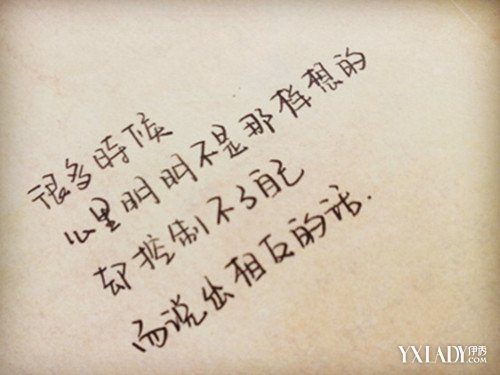 很多時候
心里明明不是那样想的
却控制不了自己
而说出相反的话.
YXLADY.伊秀